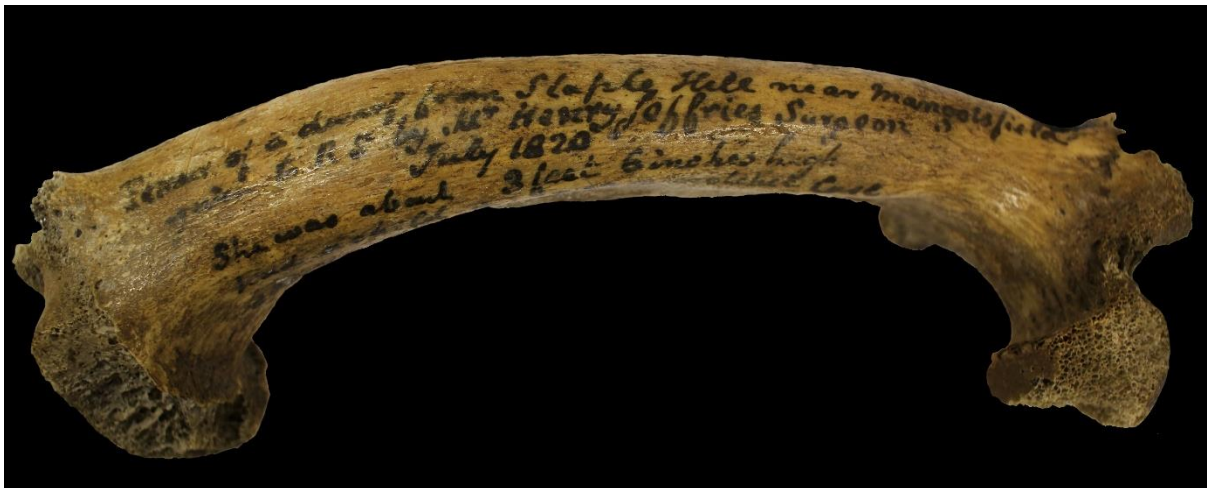 Femur of a dwarf from Staple Hill near Mangotsfield
given to R S by Mr Henry Jeffries Surgeon
July 1828
She was about 3 feet 6 inches high